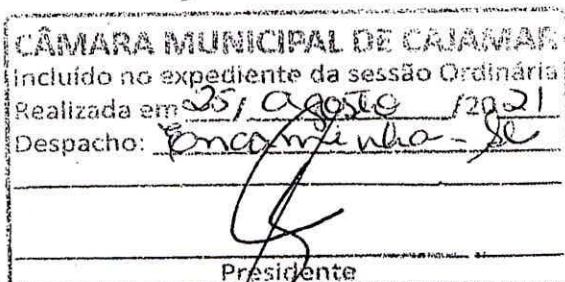 CÂMARA MUNICIPAL DE CAJAMAR
Incluído no expediente da sessão Ordinária
Realizada em 25/ Agosto /2021
Despacho: Encaminha-se
Presidente